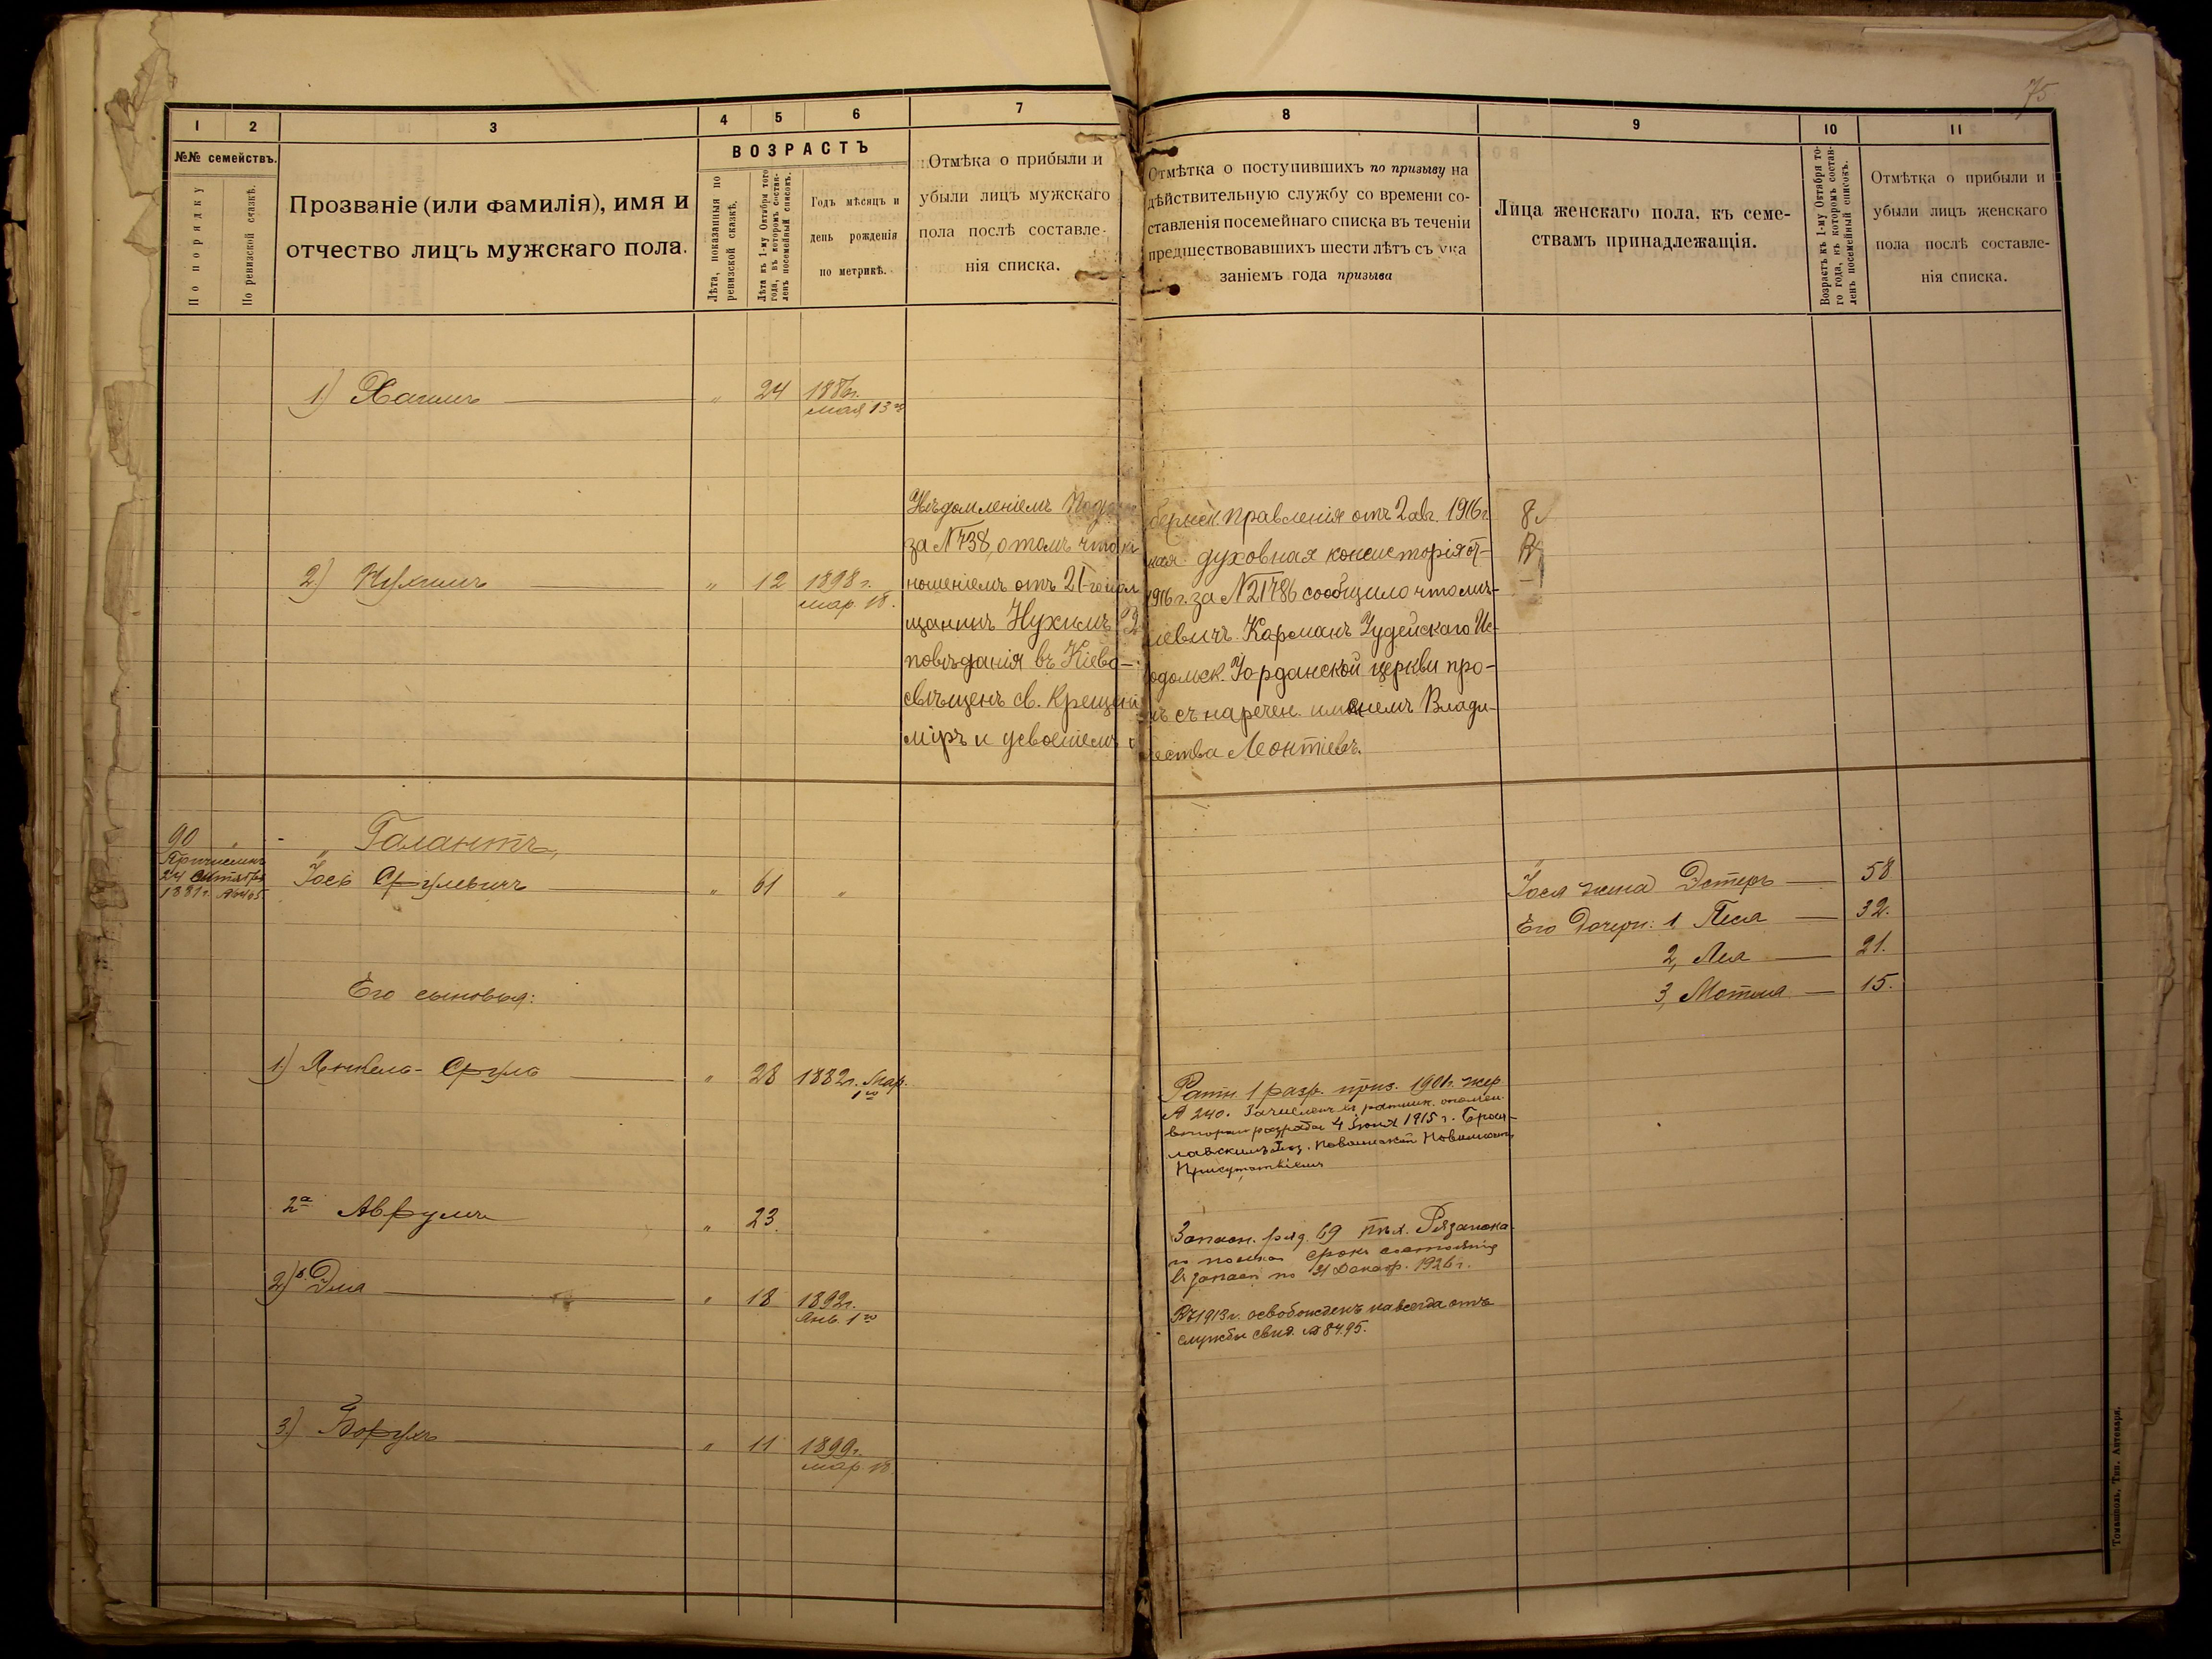 75
1 2 3 4 5 6 7 8 9 10 11
№№ семействъ.
По порядку
По ревизской сказкѣ.
Прозваніе (или фамилія), имя и
отчество лицъ мужскаго пола.
ВОЗРАСТЪ
Лѣта, показанныя по
ревизской сказкѣ.
Лѣта къ 1-му Октября того
года, въ которомъ состав-
ленъ посемейный списокъ.
Годъ мѣсяцъ и
день рожденія
по метрикѣ.
Отмѣка о прибыли и
убыли лицъ мужскаго
пола послѣ составле-
нія списка.
Отмѣтка о поступившихъ по призыву на
дѣйствительную службу со времени со-
ставленія посемейнаго списка въ теченіи
предшествовавшихъ шести лѣтъ съ ука
заніемъ года призыва
Лица женскаго пола, къ семе-
ствамъ принадлежащія.
Возрастъ къ 1-му Октября то-
го года, въ которомъ состав-
ленъ посемейный списокъ.
Отмѣтка о прибыли и
убыли лицъ женскаго
пола послѣ составле-
нія списка.
1) Хаимъ — " 24 1886г.
мая 13го
Увѣдомленіемъ Под бернск. Правленія отъ 2 авг. 1916 г.
за № 738, о томъ что духовная консисторія от-
2) Нухимъ — " 12 1898 г.
мар. 18.
ношеніемъ отъ 21-го 1916 г. за № 21786 сообщило что мѣ-
щанинъ Нухимъ левичъ Карманъ Іудейскаго Ис-
повѣданія въ Кіево- Іорданской церкви про-
свѣщенъ св. Крещен съ наречен. именемъ Влади-
міръ и усвоеніемъ чества Леонтіевъ.
90 " -
Причисленъ
24 Октября
1881г. №
Галантъ,
Іось Срулевичъ — " 61 "
Іося жена Эстеръ — 58
Его Дочери: 1, Песя — 32.
2, Лея — 21.
3, Мотля — 15.
Его сыновья:
1) Янкель-Сруль — " 28 1882г. Мар.
1го
Ратн. 1 разр. приз. 1901г. жер
№ 240. Зачисленъ въ ратник. ополчен.
второго разряда 4 Іюня 1915 г. Брац-
лавскимъ Уѣз. по воинской Повинности
Присутствіемъ
2а Аврумъ " 23.
Запасн. ряд. 69 пѣх. Рязанска-
го полка срокъ состоянія
въ запасѣ по 31 Декабр. 1926 г.
2)б. Эля — " 18 1892г.
Янв. 1го
Въ 1913 г. освобожденъ навсегда отъ
службы свид. № 8495.
3) Борухъ — " 11 1899г.
мар. 18.
Томашполь, Тип. Аптекаря.